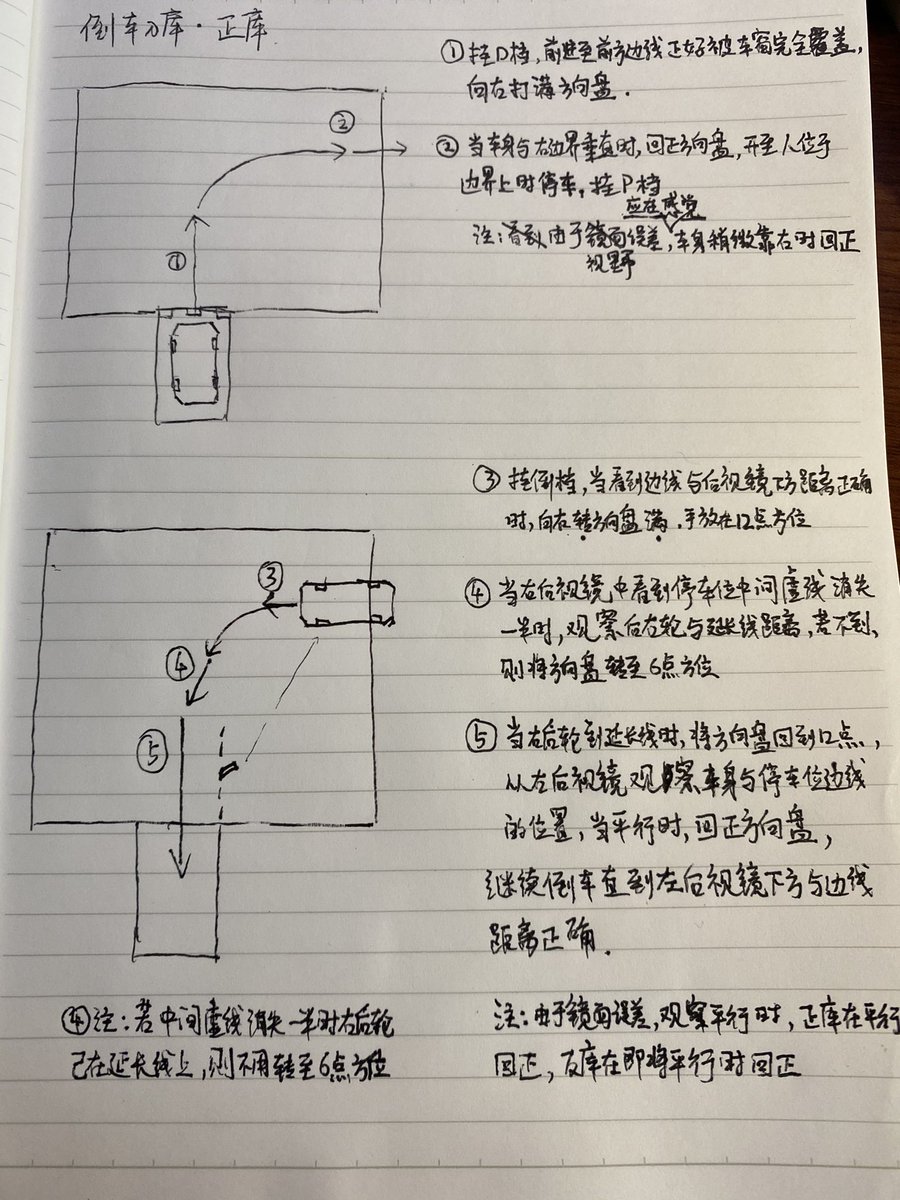 倒车入库·正库
① 挂D档，前进至前方边线正好被车窗完全覆盖，
向右打满方向盘．
② 当车身与右边界垂直时，回正方向盘，开至人位于
边界上时停车，挂P档
应在感觉
注：看到由于镜面误差，车身稍微靠右时回正
视野
①
②
③ 挂倒档，当看到边线与后视镜下方距离正确
时，向右转方向盘满．手放在12点方位
④ 当右后视镜中看到停车位中间虚线消失
一半时，观察后右轮与延长线距离，若不到，
则将方向盘转至6点方位
⑤ 当右后轮到延长线时，将方向盘回到12点，
从左后视镜观察车身与停车位边线
的位置，当平行时，回正方向盘，
继续倒车直到左后视镜下方与边线
距离正确．
③
④
⑤
④注：若中间虚线消失一半时右后轮
已在延长线上，则不用转至6点方位
注：由于镜面误差，观察平行时，正库在平行
回正，反库在即将平行时回正